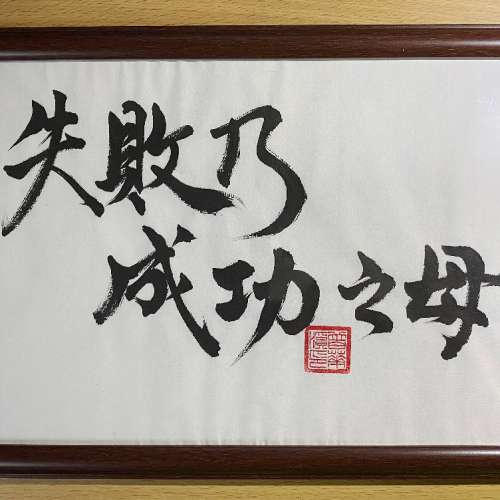 失敗乃
成功之母